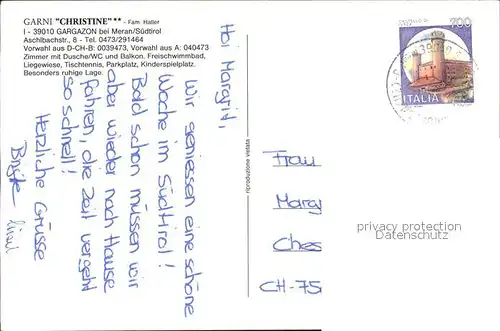 GARNI "CHRISTINE" ** - Fam. Haller
I - 39010 GARGAZON bei Meran/Südtirol
Aschlbachstr., 8 - Tel. 0473/291464
Vorwahl aus D-CH-B: 0039473, Vorwahl aus A: 040473
Zimmer mit Dusche/WC und Balkon. Freischwimmbad,
Liegewiese, Tischtennis, Parkplatz, Kinderspielplatz.
Besonders ruhige Lage.
Hoi Margrit,
Wir geniessen eine schöne
Woche im Südtirol!
Bald schon müssen wir
aber wieder nach Hause
fahren, die Zeit vergeht
so schnell!
Herzliche Grüsse
riproduzione vietata
700
ITALIA
Frau
Marg
Ches
CH-75
privacy protection
Datenschutz